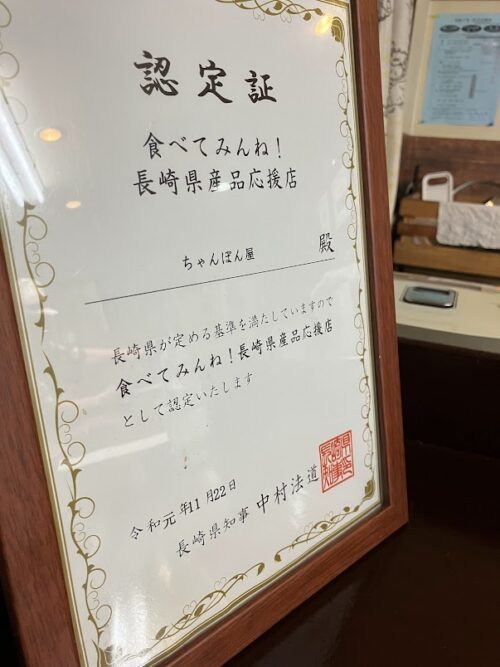 認定証
食べてみんね！
長崎県産品応援店
ちゃんぽん屋 殿
長崎県が定める基準を満たしていますので
食べてみんね！長崎県産品応援店
として認定いたします
令和元年11月22日
長崎県知事 中村法道